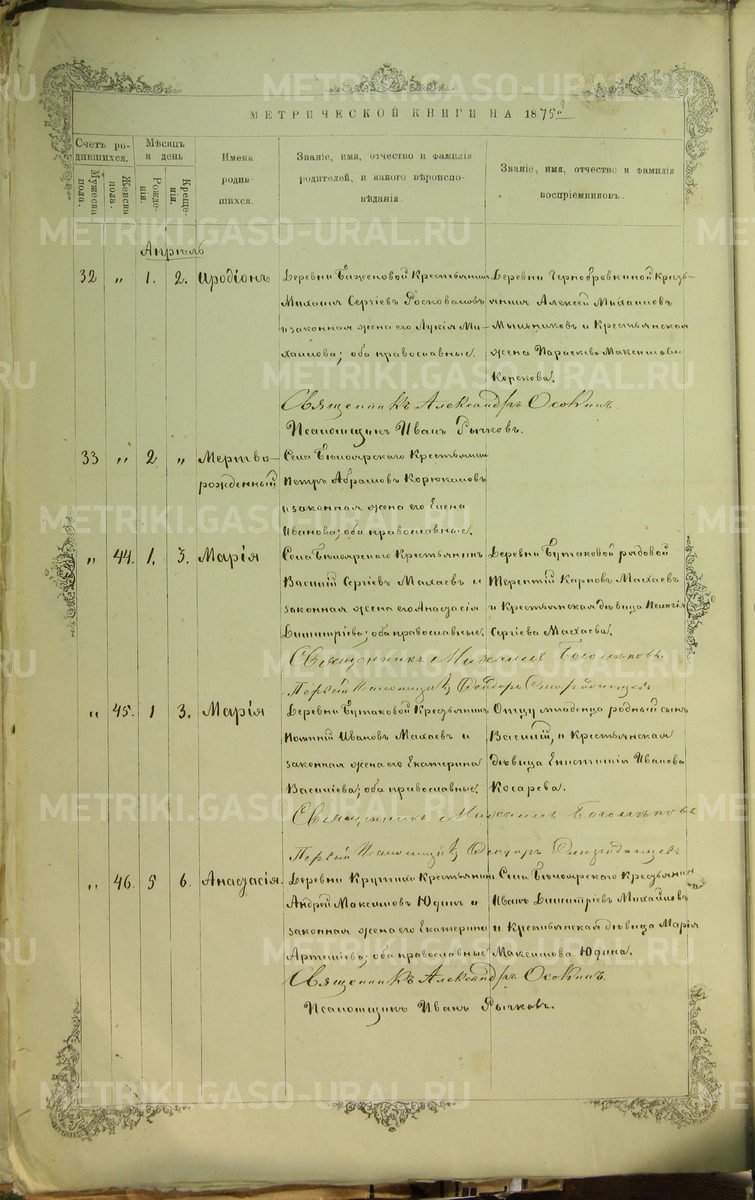 МЕТРИЧЕСКОЙ КНИГИ НА 1875й
Счетъ ро-
дившихся.
Мужеска
пола.
Женска
пола.
Мѣсяцъ
и день
Рожде-
нія.
Креще-
нія.
Имена
родив
шихся.
Званіе, имя, отчество и фамилія
родителей, и какого вѣроиспо-
вѣданія.
Званіе, имя, отчество и фамилія
воспріемниковъ.
Апрѣль
32 „ 1. 2. Иродіонъ
Деревни Баженовой Крестьянинъ
Михаилъ Сергѣевъ
и законная жена его Лукія Ми-
хаилова; оба православные.
Деревни Чернобровкиной Кресть-
янинъ Алексѣй Михаиловъ
Мыльниковъ и Крестьянская
жена Параскева Максимова
Корекова.
Священникъ Александръ Осокинъ.
Псаломщикъ Иванъ Рычковъ.
33 „ 2 „ Мертво-
рожденный
Села Бѣлоярскаго Крестьянинъ
Петръ Абрамовъ Корюкаловъ
и законная жена его Елена
Иванова; оба православные.
„ 44. 1. 3. Марія
Села Бѣлоярскаго Крестьянинъ
Василій Сергѣевъ Махаевъ и
законная жена его Анастасія
Димитріева; оба православные.
Деревни Бутаковой рядовой
Терентій Карповъ Махаевъ
и Крестьянская дѣвица Пелагія
Сергѣева Махаева.
Священникъ Михаилъ
Первый Псаломщикъ Ѳеодоръ
„ 45. 1 3. Марія
Деревни Бутаковой Крестьянинъ
Иванов Махаевъ и
законная жена его Екатерина
Василіева; оба православные.
Отцу младенца родный сынъ
Василій, и Крестьянская
дѣвица Епистимія Иванова
Косарева.
Священникъ Михаилъ
Первый Псаломщикъ Ѳеодоръ
„ 46. 5 6. Анастасія
Деревни Крутихи Крестьянинъ
Андрей Максимовъ Юдинъ и
законная жена его Екатерина
Артеміева; оба православные
Села Бѣлоярскаго Крестьянинъ
Иванъ Димитріевъ Михайловъ
и Крестьянская дѣвица Марія
Максимова Юдина.
Священникъ Александръ Осокинъ.
Псаломщикъ Иванъ Рычковъ.
METRIKI.GASO-URAL.RU